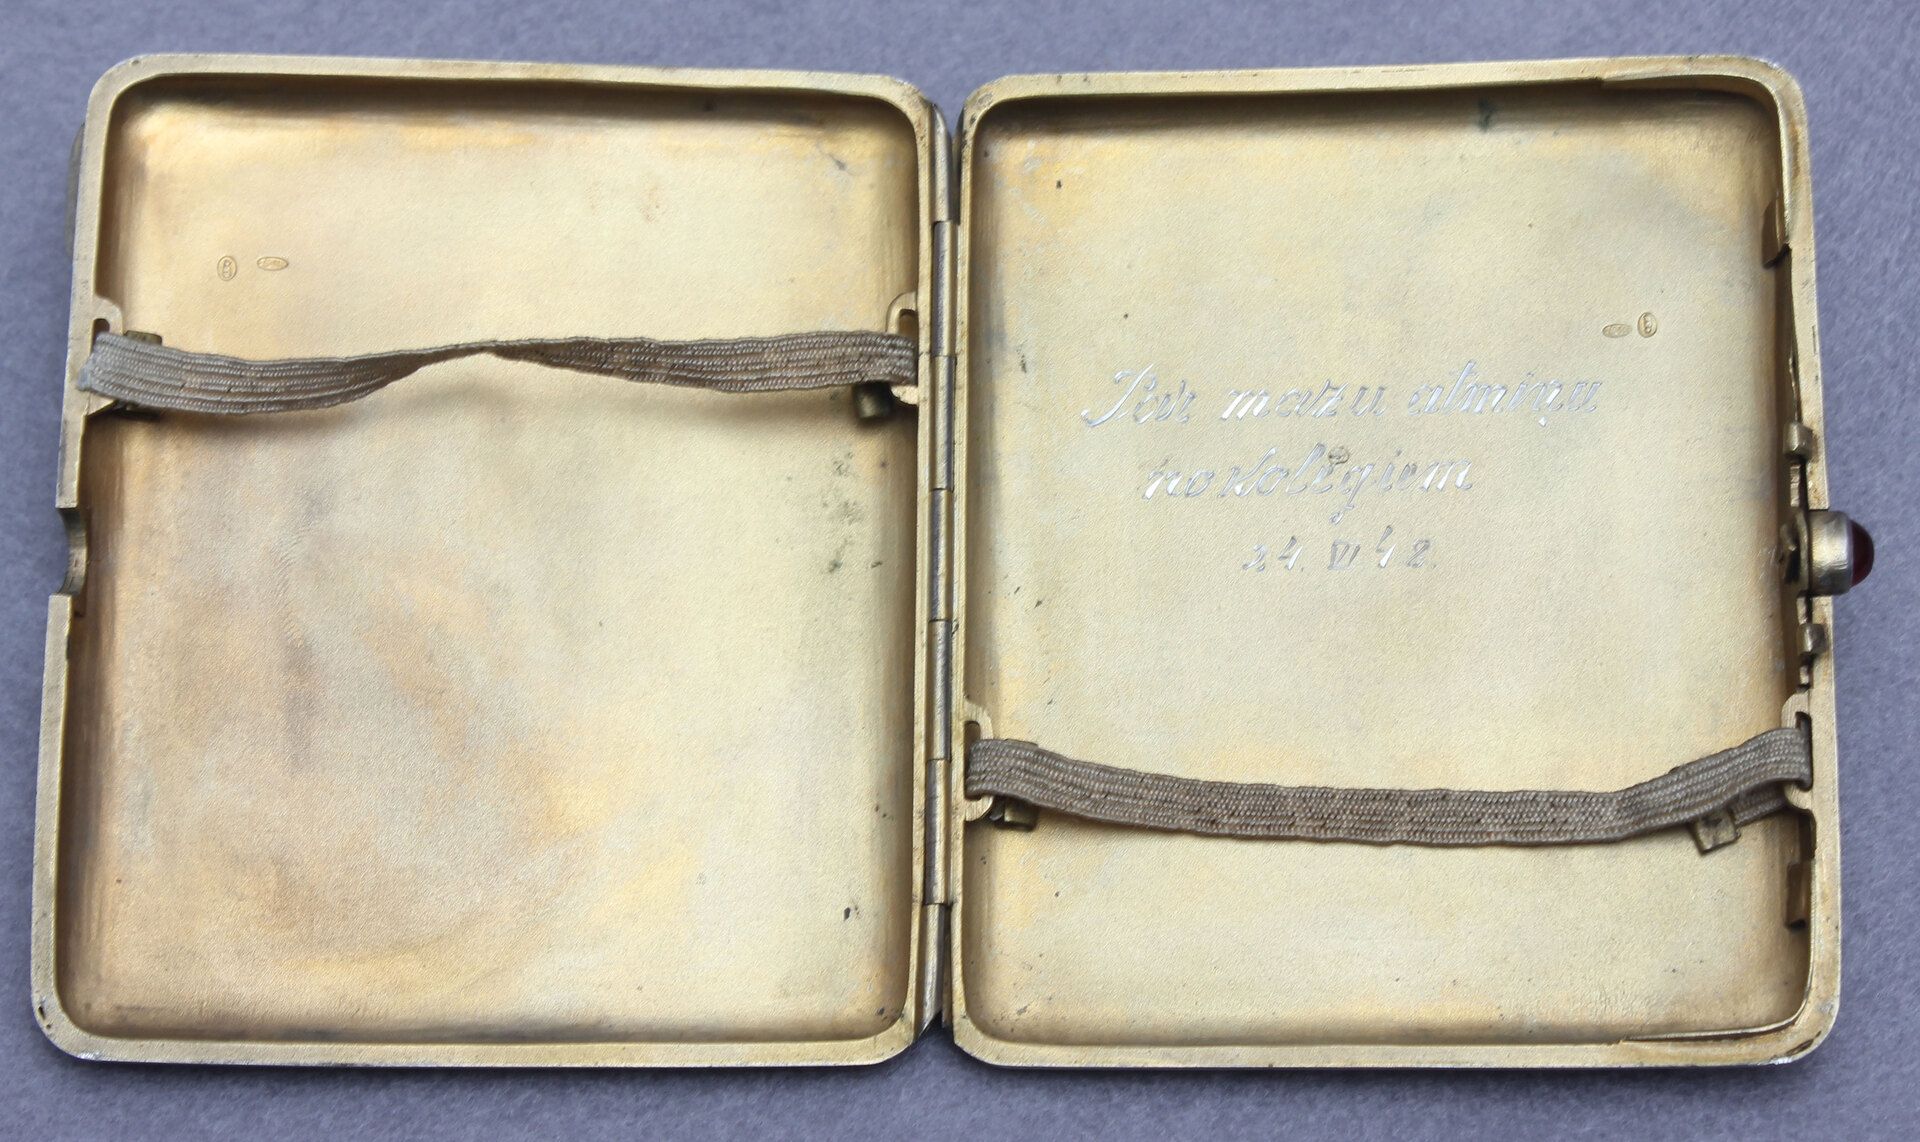 Par mazu atmiņu
no kolēģiem
24. VI 42.